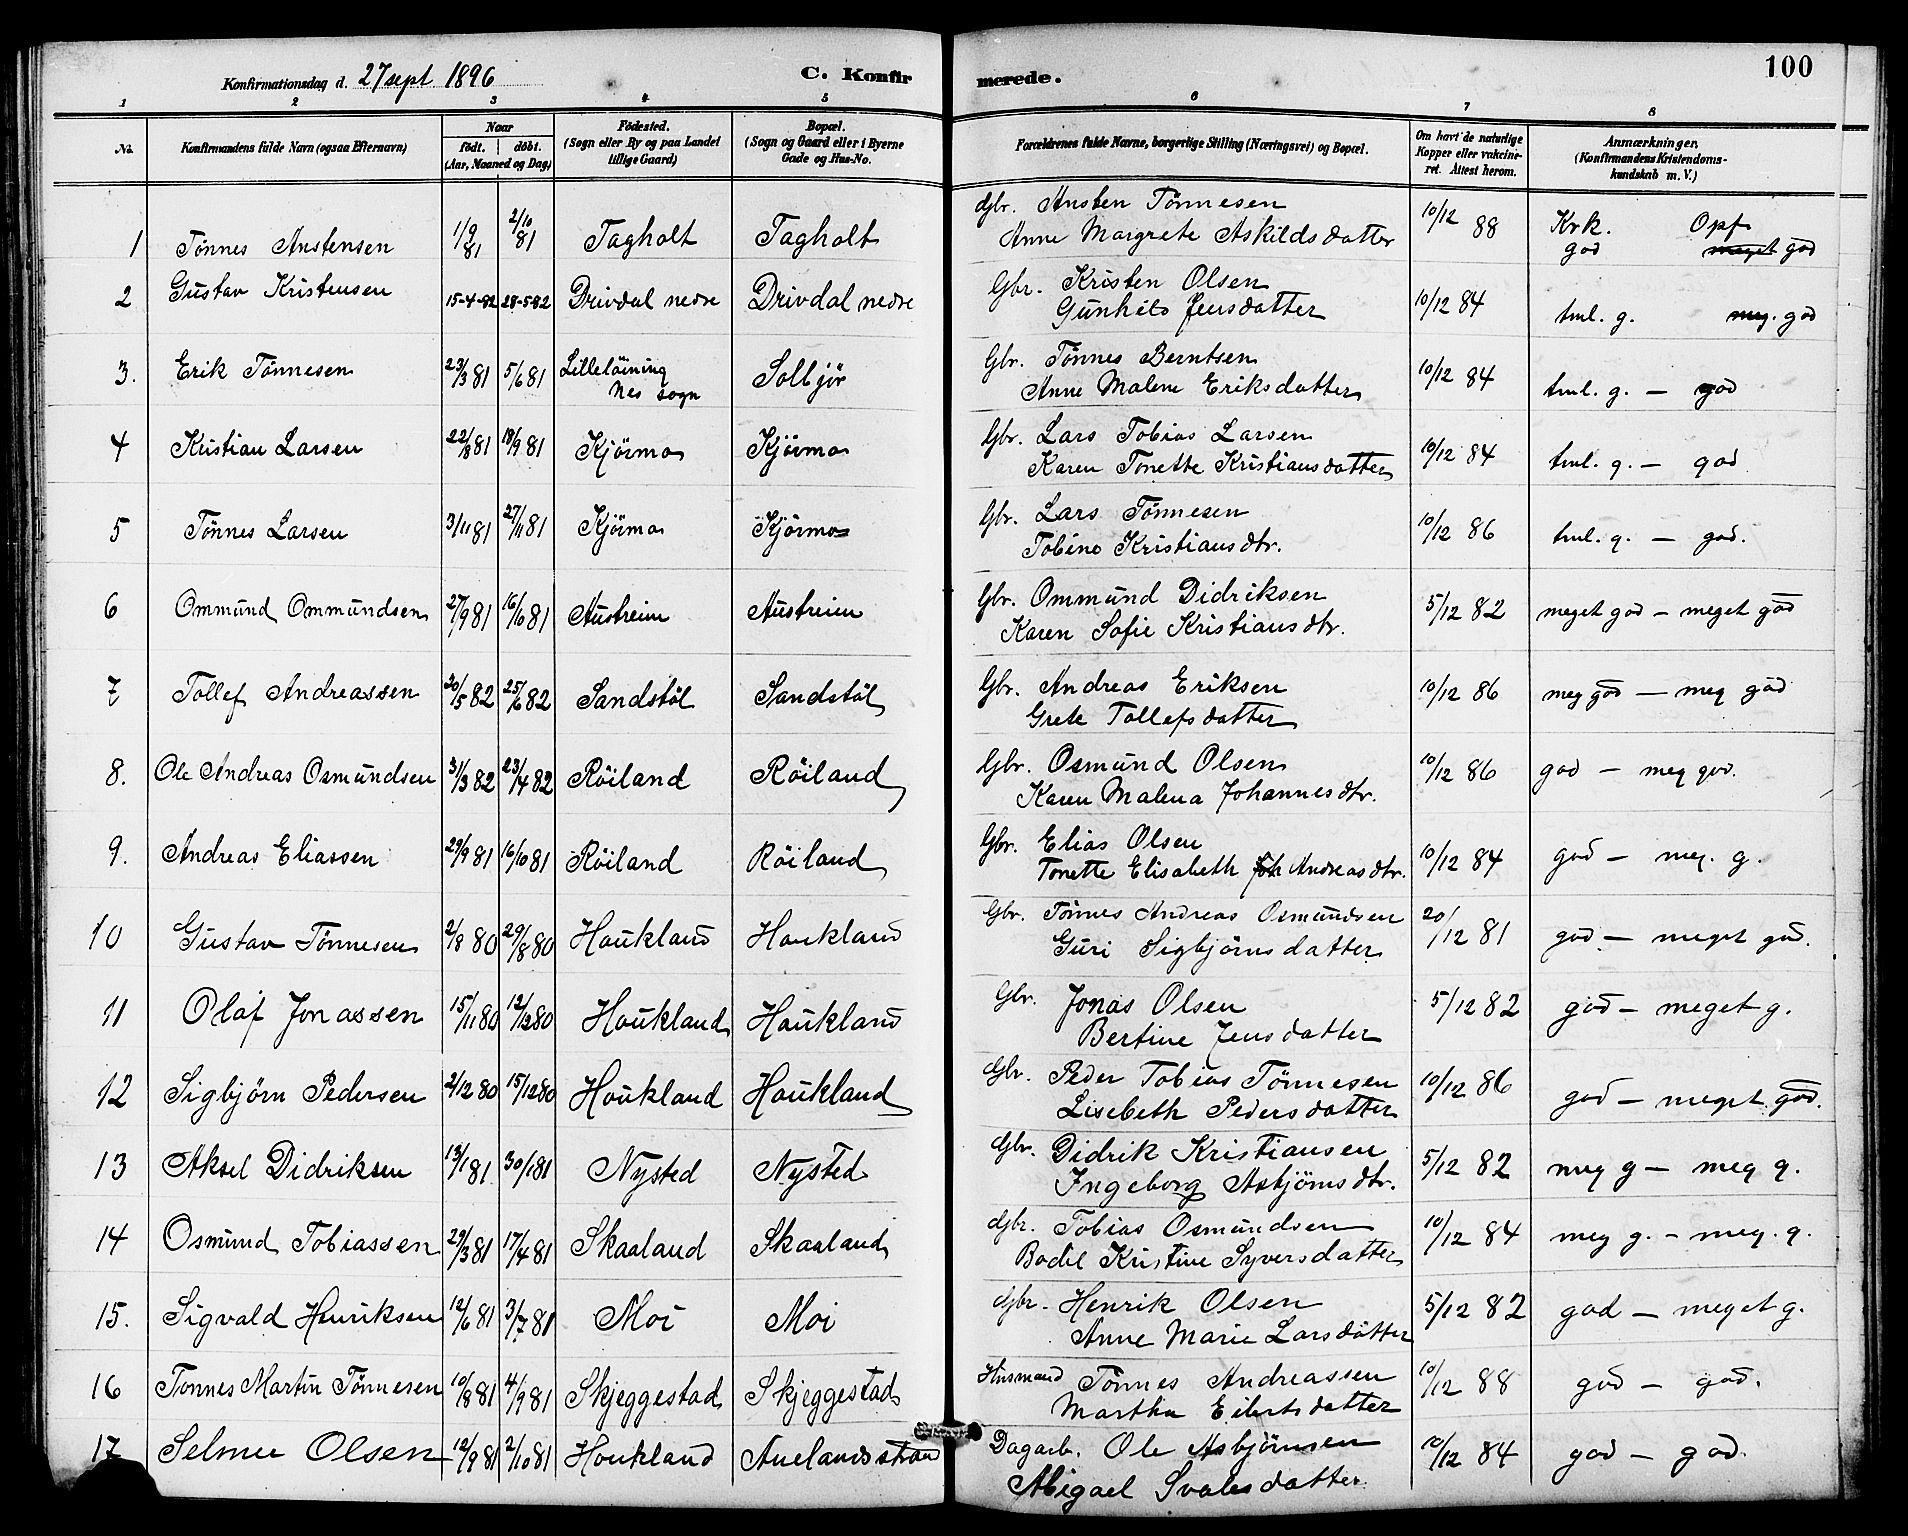 100
Konfirmationsdag d. 27 sept. 1896 C. Konfirmerede.
1 2 3 4 5 6 7 8
No. Konfirmandens fulde Navn (ogsaa Efternavn) Naar født. døbt. (Aar, Maaned og Dag) Fødested. (Sogn eller By og paa Landet tillige Gaard) Bopæl. (Sogn og Gaard eller i Byerne Gade og Hus-No. Forældrenes fulde Navne, borgerlige Stilling (Næringsvei) og Bopæl. Om havt de naturlige Kopper eller vakcineret. Attest herom. Anmærkninger. (Konfirmandens Kristendomskundskab m. V.)
1 Tønnes Anstensen 1/9 81 2/10 81 Tagholt Tagholt Gbr. Ansten Tønnesen 10/12 88 Krk. Opf.
Anne Margrete Askildsdatter god meget god
2 Gustav Kristensen 15-4-82 28-5-82 Drivdal nedre Drivdal nedre Gbr. Kristen Olsen 10/12 84 tml. g. meg. god
Gunhild Jensdatter
3. Erik Tønnesen 23/3 81 5/6 81 Lilleløining Nes sogn Solbjør Gbr. Tønnes Berntsen 10/12 84 tml. g. — god
Anne Malene Eriksdatter
4 Kristian Larsen 22/8 81 18/9 81 Kjørmo Kjørmo Gbr. Lars Tobias Larsen 10/12 84 tml. g. — god
Karen Tonette Kristiansdatter
5 Tønnes Larsen 3/11 81 27/11 81 Kjørmo Kjørmo Gbr. Lars Tønnesen 10/12 86 tml. g. — god.
Tobine Kristiansdtr.
6 Ommund Ommundsen 27/9 81 16/10 81 Austreim Austreim Gbr. Ommund Didriksen 5/12 82 meget god — meget god
Karen Sofie Kristiansdtr.
7 Tollef Andreassen 20/5 82 25/6 82 Sandstøl Sandstøl Gbr. Andreas Eriksen 10/12 86 meg god — meg god
Grete Tollefsdatter
8. Ole Andreas Osmundsen 31/3 82 23/4 82 Røiland Røiland Gbr. Osmund Olsen 10/12 86 god — meg god.
Karen Malena Johannesdtr.
9. Andreas Eliassen 29/9 81 16/10 81 Røiland Røiland Gbr. Elias Olsen 10/12 84 god — meg. g.
Tonette Elisabeth Joh Andreasdtr.
10 Gustav Tønnesen 2/8 80 29/8 80 Haukland Haukland Gbr. Tønnes Andreas Osmundsen 20/12 81 god — meget god.
Guri Sigbjørnsdatter
11 Olaf Jonassen 15/11 80 12/12 80 Haukland Haukland Gbr. Jonas Olsen 5/12 82 god — meget g.
Bertine Jensdatter
12 Sigbjørn Pedersen 2/12 80 15/12 80 Haukland Haukland Gbr. Peder Tobias Tønnesen 10/12 86 god — meget god.
Lisebeth Pedersdatter
13 Aksel Didriksen 13/1 81 30/1 81 Nysted Nysted Gbr. Didrik Kristiansen 5/12 82 meg g — meg g.
Ingeborg Asbjørnsdtr.
14 Osmund Tobiassen 29/3 81 17/4 81 Skaaland Skaaland Gbr. Tobias Osmundsen 10/12 84 meg g. — meg. g.
Bodil Kristine Syversdatter
15. Sigvald Henriksen 12/6 81 3/7 81 Moi Moi Gbr. Henrik Olsen 5/12 82 god — meget g.
Anne Marie Larsdatter
16 Tønnes Martin Tønnesen 10/8 81 4/9 81 Skjeggestad Skjeggestad Husmand Tønnes Andreassen 10/12 88 god — god.
Martha Eilertsdatter
17 Selmer Olsen 12/9 81 2/10 81 Haukland Auelandsstran Dagarb. Ole Asbjørnsen 10/12 84 god — god.
Abigael